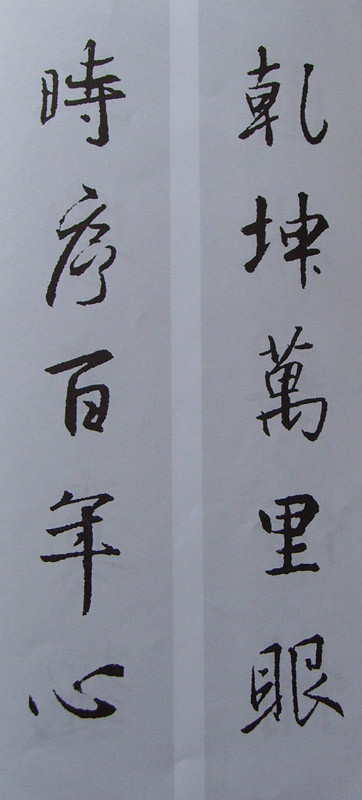 乾坤萬里眼
時序百年心